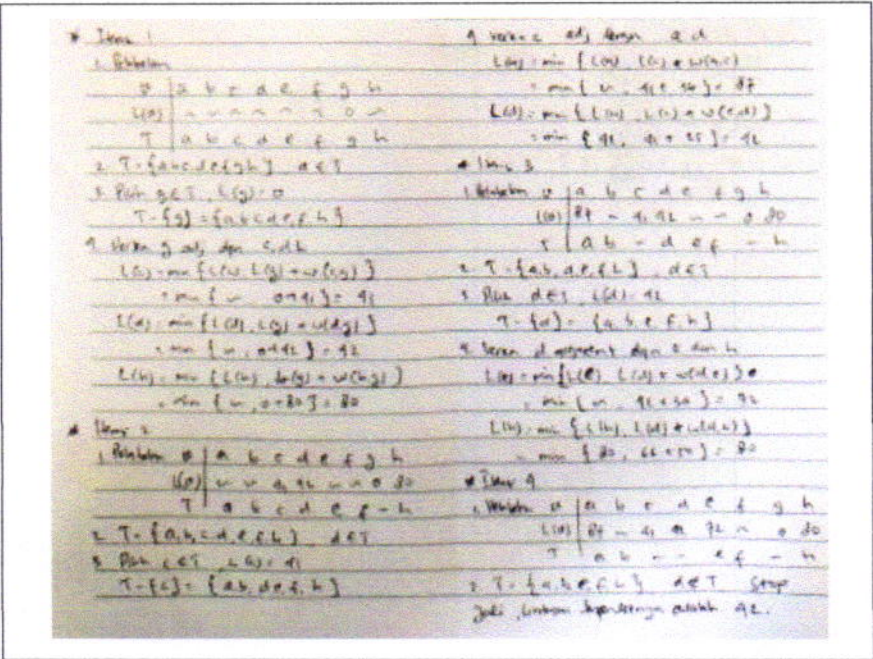 * Iterasi 1
1. Pelabelan
v | a b c d e f g h
L(v) | ~ ~ ~ ~ ~ ~ 0 ~
T | a b c d e f g h
2. T = {a b c d e f g h} d ∈ T
3. Pilih g ∈ T, L(g) = 0
T - {g} = {a b c d e, f, h}
4. Verteks g adj dgn c, d, h
L(c) = min {L(c), L(g) + w(c,g)}
= min {~, 0+41} = 41
L(d) = min {L(d), L(g) + w(d,g)}
= min {~, 0+42} = 42
L(h) = min {L(h), L(g) + w(h,g)}
= min {~, 0+80} = 80
* Iterasi 2
1. Pelabelan v | a b c d e f g h
L(v) | ~ ~ 41 42 ~ ~ 0 80
T | a b c d e f - h
2. T = {a, b, c, d, e, f, h} d ∈ T
3. Pilih c ∈ T, L(c) = 41
T - {c} = {a b, d e, f, h}
4. verteks c adj dengan a d
L(a) = min {L(a), L(c) + w(a,c)}
= min {~, 41+ 46} = 87
L(d) = min {L(d), L(c) + w(c,d)}
= min {42, 41 + 25} = 42
* Iterasi 3
1. Pelabelan v | a b c d e f g h
L(v) | 87 ~ 41 42 ~ ~ 0 80
T | a b - d e f - h
2. T = {a, b, d, e, f, h}, d ∈ T
3. Pilih d ∈ T, L(d) = 42
T - {d} = {a, b, e, f, h}
4. verteks d adjacent dgn e dan h
L(e) = min {L(e), L(d) + w(d,e)}
= min {~, 42 + 30} = 72
L(h) = min {L(h), L(d) + w(d,h)}
= min {80, + 50} = 80
* Iterasi 4
1. Pelabelan v | a b c d e f g h
L(v) | 87 ~ 41 72 ~ 0 80
T | a b - - e f - h
2. T = {a, b, e, f, h} d ∉ T Stop
Jadi, lintasan terpendeknya adalah 42.